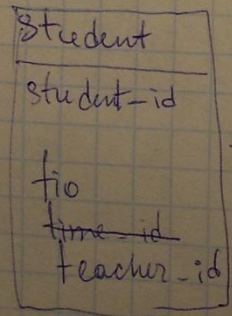 student
student_id
fio
time_id
teacher_id